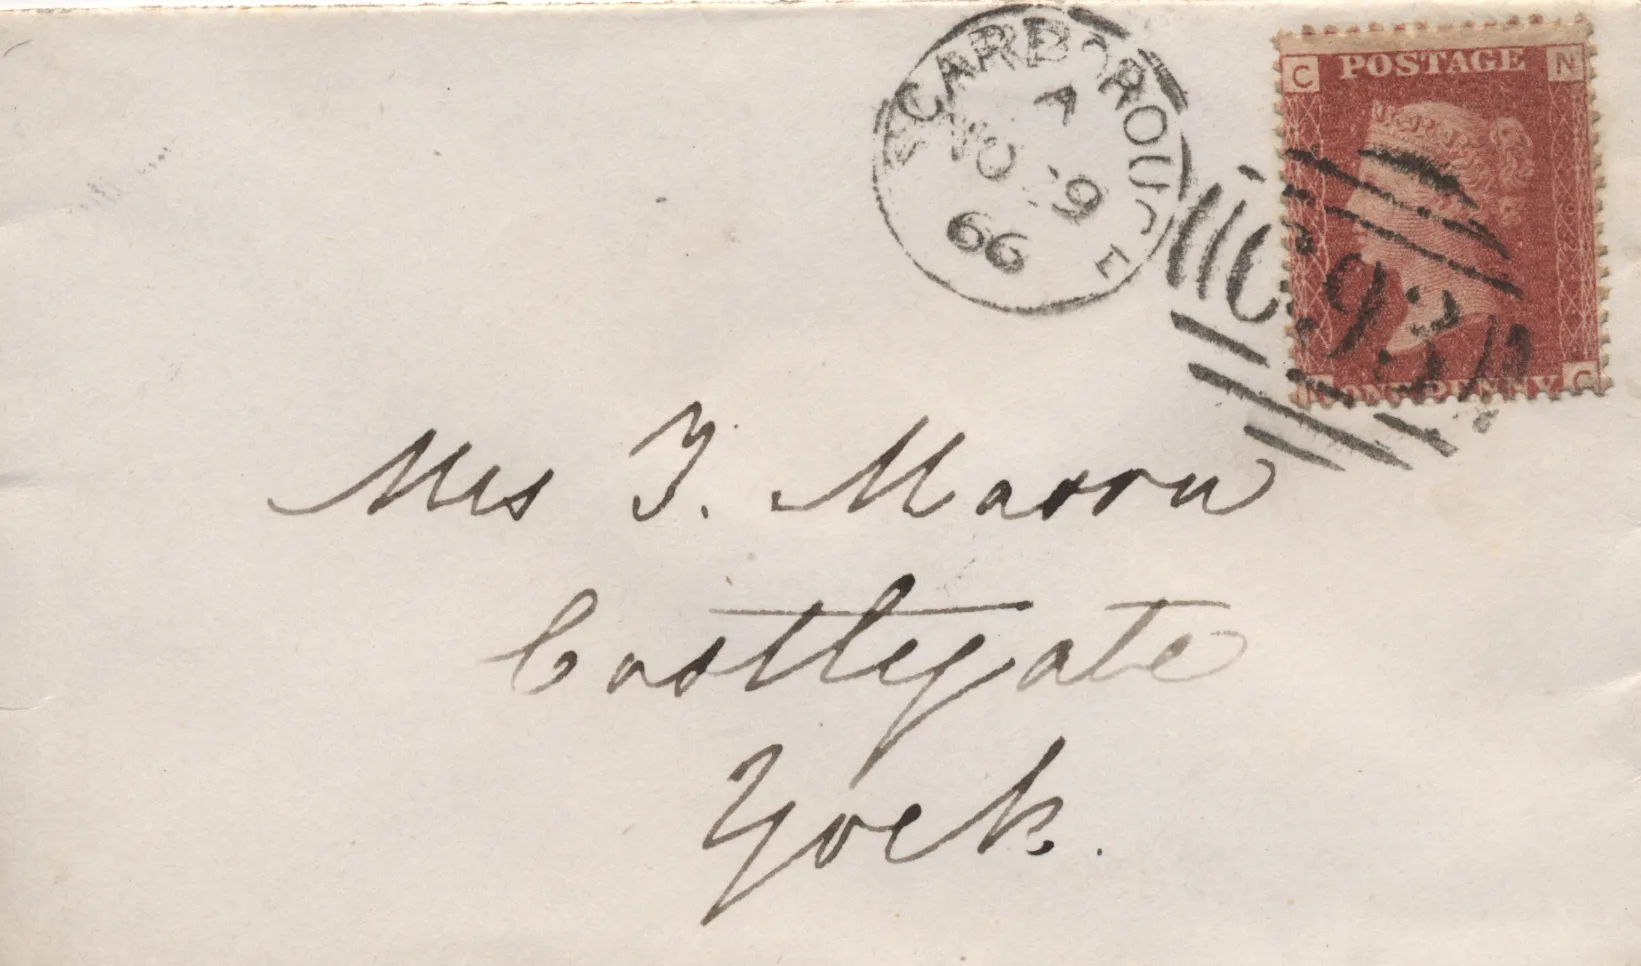 SCARBOROUGH
A
NO 29
66
C POSTAGE N
693
ONE PENNY C
Mrs T. Mason
Castlegate
York.